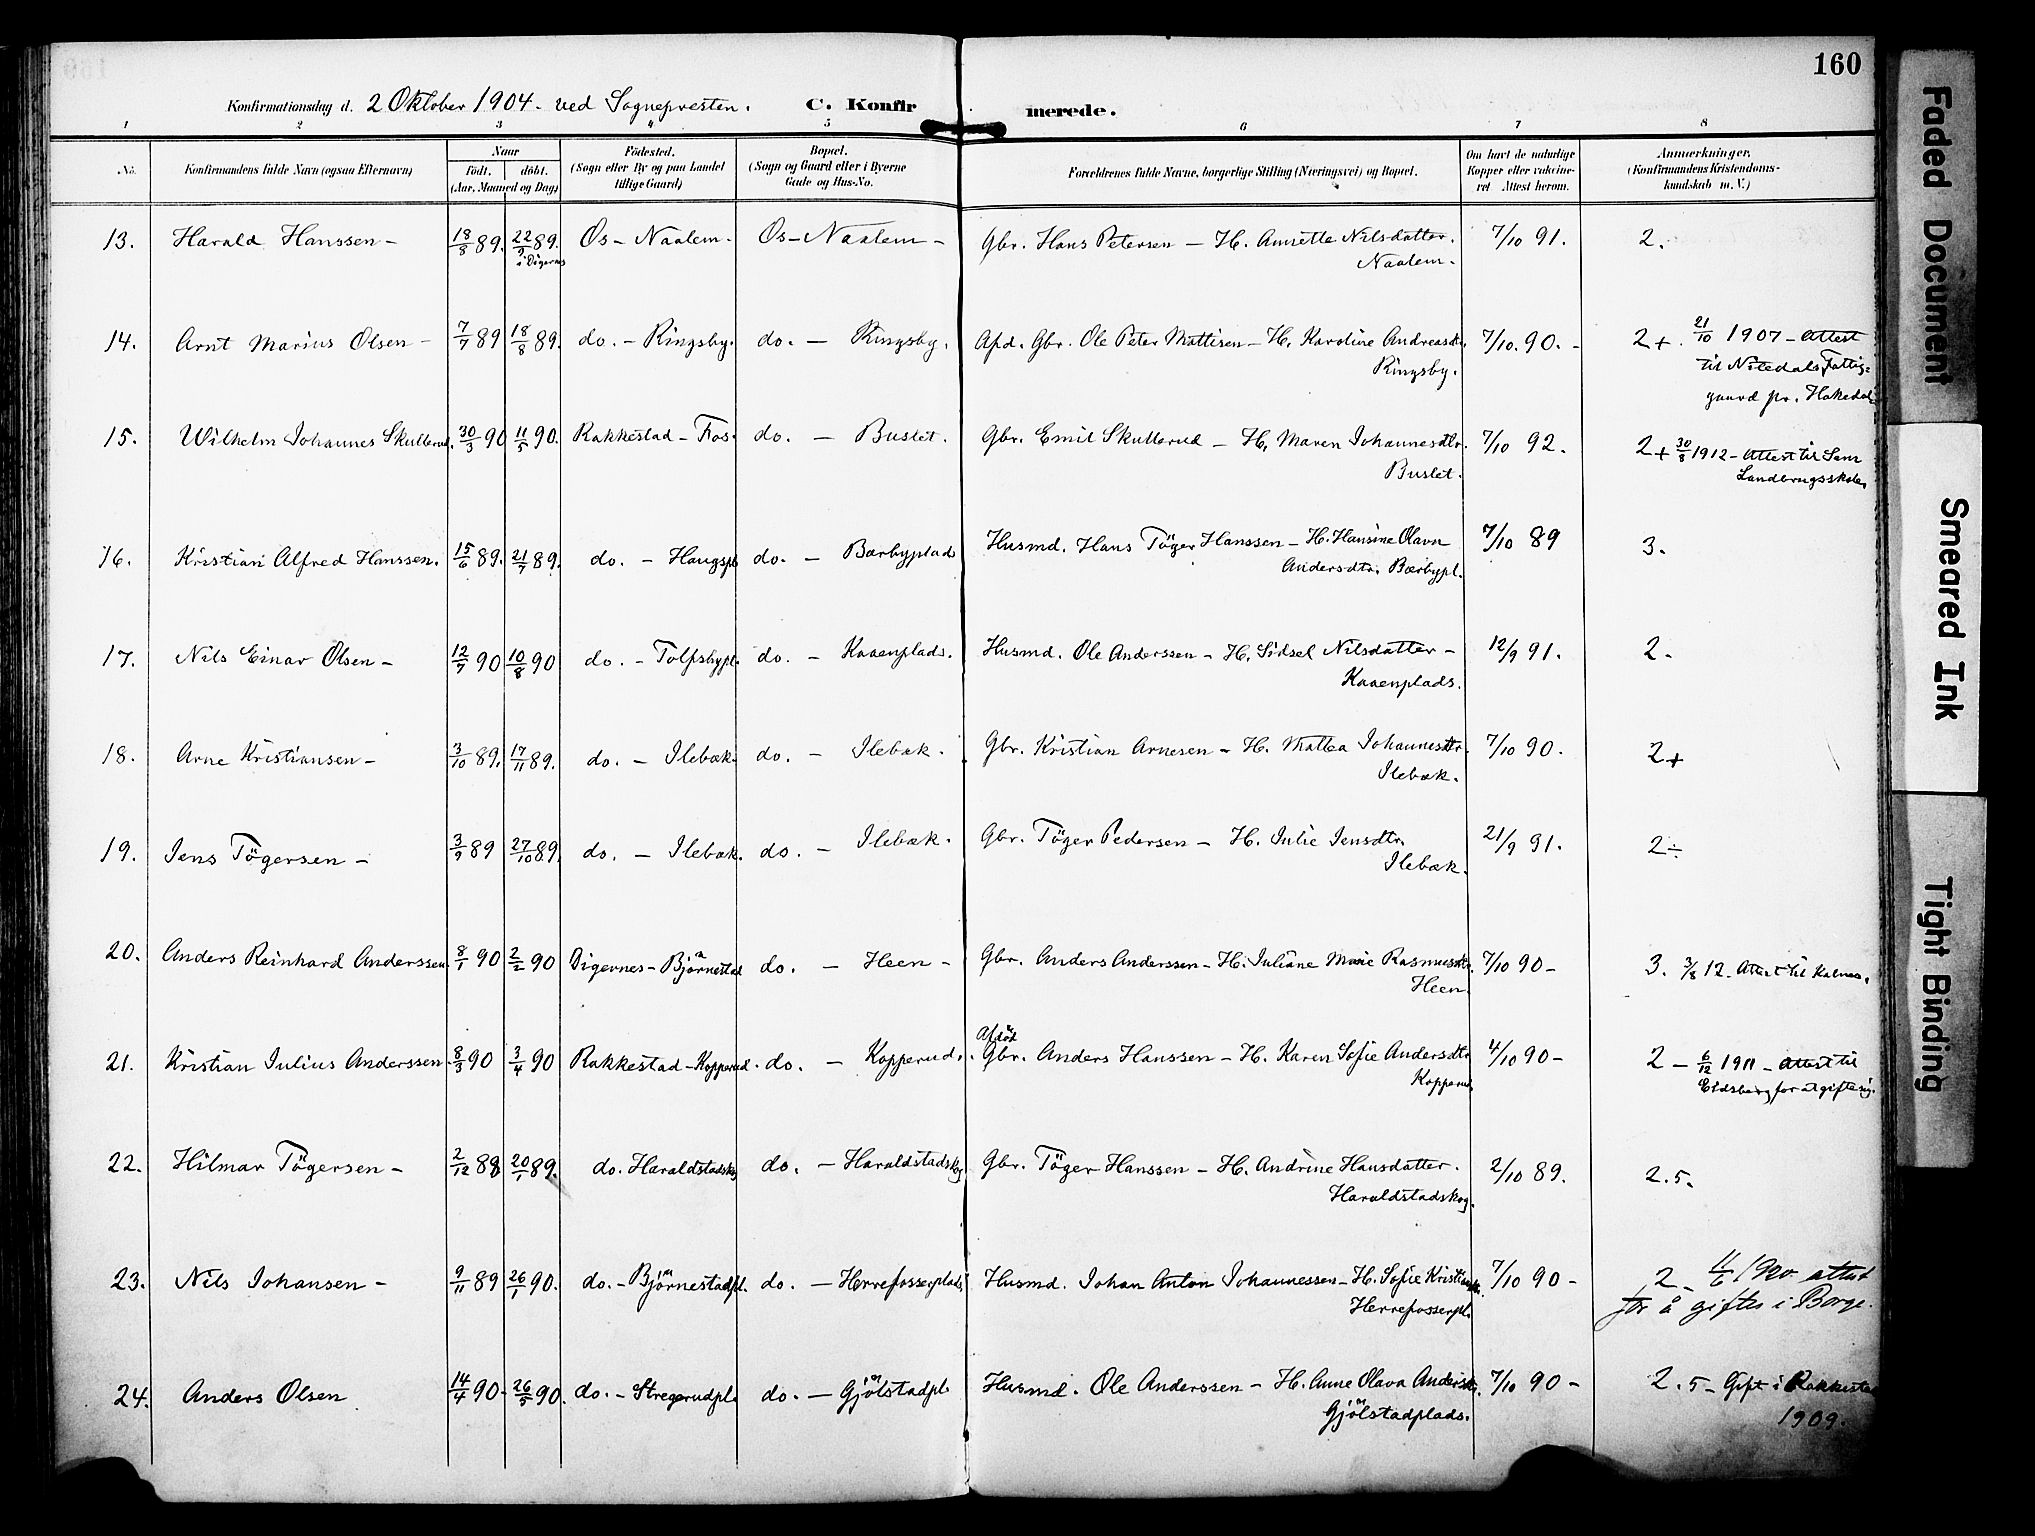 160
Konfirmationsdag d. 2 Oktober 1904 - ved Sognepresten. C. Konfirmerede.
1 2 3 4 5 6 7 8
No. Konfirmandens fulde Navn (ogsaa Efternavn) Naar født. døbt. (Aar, Maaned og Dag) Fødested. (Sogn eller By og paa Landet tillige Gaard) Bopæl. (Sogn og Gaard eller i Byerne Gade og Hus-No. Forældrenes fulde Navne, borgerlige Stilling (Næringsvei) og Bopæl. Om havt de naturlige Kopper eller vaccineret Attest herom. Anmerkninger. (Konfirmandens Kristendomskundskab m. V.)
13. Harald Hanssen - 18/8 89. 22/9 89. Os - Naalem. Os - Naalem - Gbr. Hans Petersen - H. Annette Nilsdatter. 7/10 91. 2.
Naalem.
14. Arnt Marius Olsen - 7/7 89 18/8 89. do. - Ringsby. do. - Ringsby. Afd. Gbr. Ole Peter Mattisen - H. Karoline Andreasdtr. 7/10. 90. - 2+. 21/10 1907 - Attest
Ringsby. til Nitedals Fattig=
gaard pr. Hakedal
15. Wilhelm Johannes Skullerud. 30/3 90 11/5 90. Rakkestad - Fos. do. - Buslet. Gbr. Emil Skullerud - H. Maren Johannesdtr. 7/10 92. 2+ 30/8 1912 - Attest til Sem
Buslet. Landbrugsskole.
16. Kristian Alfred Hanssen. 15/6 89. 21/7 89. do. - Haugspl. do. - Bærbyplad Husmd. Hans Töger Hanssen - H. Hansine Olava 7/10 89 3.
Andersdtr. Bærbypl.
17. Nils Einar Olsen - 12/7 90 10/8 90 do. - Tolfsbypl. do. - Kaaenplads. Husmd. Ole Anderssen - H. Sidsel Nilsdatter - 12/9 91. 2.
Kaaenplads.
18. Arne Kristiansen - 3/10 89. 17/11 89. do. - Ilebæk. do. - Ilebæk. Gbr. Kristian Arnesen - H. Mattea Johannesdtr. 7/10 90. 2+
Ilebæk.
19. Jens Tögersen - 3/9 89 27/10 89. do. - Ilebæk. do. - Ilebæk. Gbr. Töger Pedersen - H. Julie Jensdtr. 21/9 91. 2÷
Ilebæk.
20. Anders Reinhard Anderssen 8/1 90 2/2 90 Digernes - Björnestad do. - Heen - Gbr. Anders Anderssen - H. Juliane Marie Rasmusdtr. 7/10 90 - 3. 3/8 12. Attest til Kalnes.
Heen.
Afdöd
21. Kristian Julius Anderssen. 8/3 90 3/4 90 Rakkestad - Kopperud. do. - Kopperud. Gbr. Anders Hanssen - H. Karen Sofie Andersdtr 4/10 90 - 2 - 6/12 1911 - Attest til
Kopperud Eidsberg for at gifte sig.
22. Hilmar Tögersen - 2/12 88 20/1 89. do. Haraldstadskog do. - Haraldstadskog Gbr. Töger Hanssen - H. Andrine Hansdatter. 2/10 89. 2.5.
Haraldstadskog.
23. Nils Johansen - 9/11 89 26/1 90. do. - Björnestadpl. do. - Herrefosserplads Husmd. Johan Anton Johannessen - H. Sofie Kristiansdtr. 7/10 90 - 2 - 11/6 1920 attest
Herrefosserpl. for å giftes i Borge.
24. Anders Olsen 14/4 90. 26/5 90. do. - Stregerudpl. do. - Gjölstadpl. Husmd. Ole Anderssen - H. Anne Olava Andersdtr. 7/10 90 - 2.5 - Gift i Rakkestad
Gjölstadplads. 1909.
Faded Document
Smeared Ink
Tight Binding